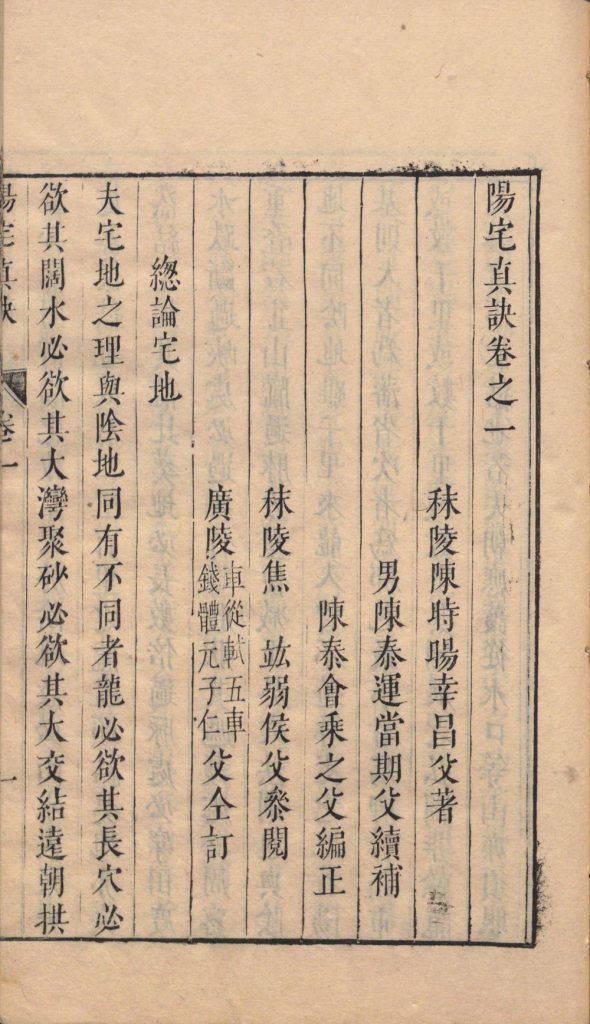 陽宅真訣卷之一
秣陵陳時暘幸昌父著
男陳泰運當期父續補
陳泰會乘之父編正
秣陵焦竑弱侯父叅閱
廣陵
車從軾五車
錢體元子仁
父仝訂
總論宅地
夫宅地之理與陰地同有不同者龍必欲其長穴必
欲其闊水必欲其大灣聚砂必欲其大交結遠朝拱
陽宅真訣
卷一
一